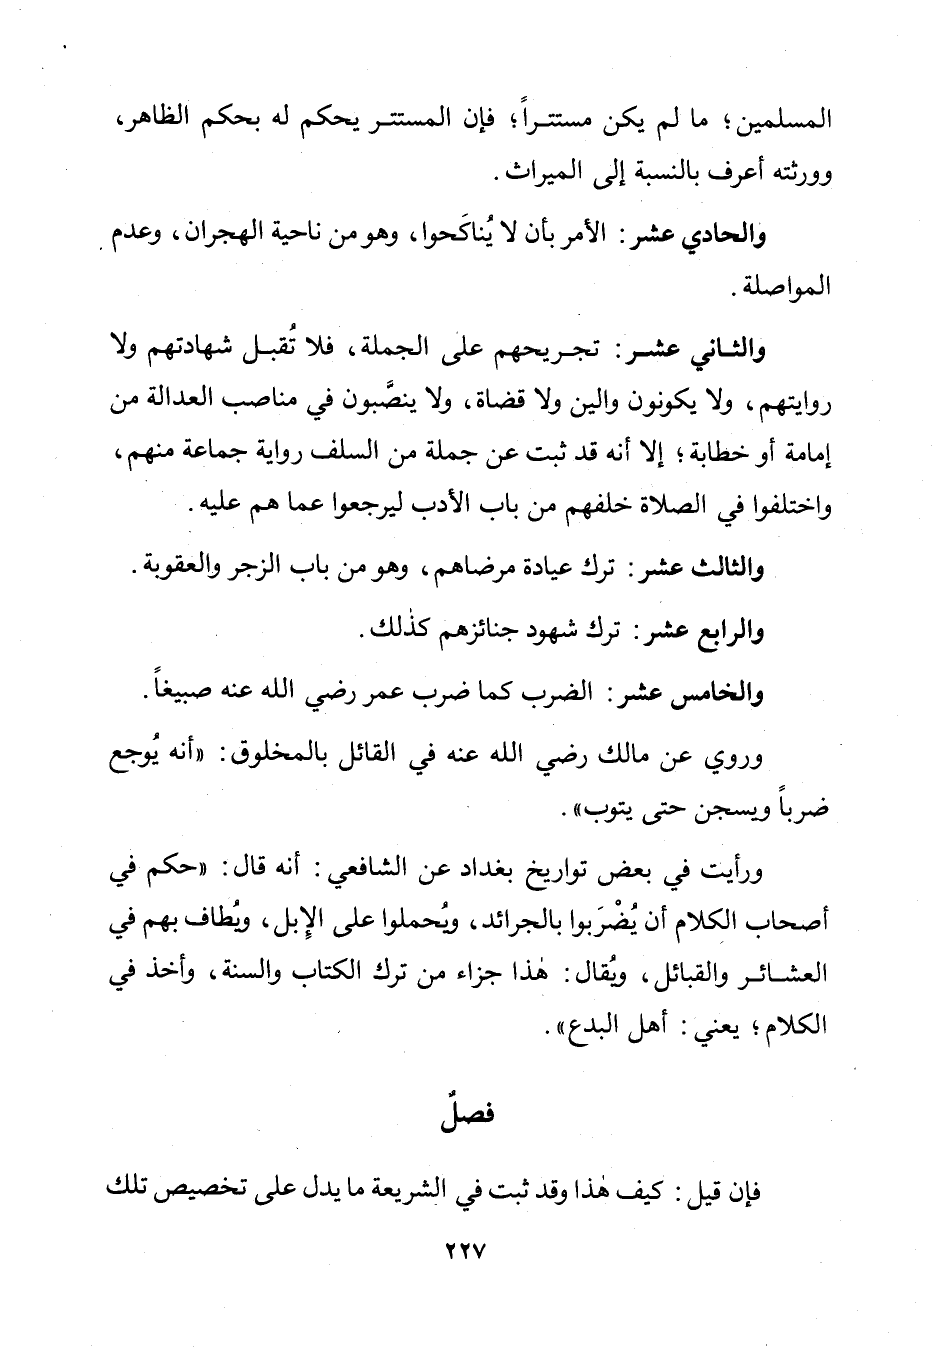 المسلمين؛ ما لم يكن مستتـراً؛ فإن المستتـر يحكم له بحكم الظاهر،
وورثته أعرف بالنسبة إلى الميراث.
والحادي عشر: الأمر بأن لا يُناكَحوا، وهو من ناحية الهجران، وعدم
المواصلة.
والثـاني عشـر: تجـريحهم على الجملة، فلا تُقبـل شهادتهم ولا
روايتهم، ولا يكونون والين ولا قضاة، ولا ينصَّبون في مناصب العدالة من
إمامة أو خطابة؛ إلا أنه قد ثبت عن جملة من السلف رواية جماعة منهم،
واختلفوا في الصلاة خلفهم من باب الأدب ليرجعوا عما هم عليه.
والثالث عشر: ترك عيادة مرضاهم، وهو من باب الزجر والعقوبة.
والرابع عشر: ترك شهود جنائزهم كذٰلك.
والخامس عشر: الضرب كما ضرب عمر رضي الله عنه صبيغاً.
وروي عن مالك رضي الله عنه في القائل بالمخلوق: «أنه يُوجع
ضرباً ويسجن حتى يتوب».
ورأيت في بعض تواريخ بغداد عن الشافعي: أنه قال: «حكم في
أصحاب الكلام أن يُضْرَبوا بالجرائد، ويُحملوا على الإِبل، ويُطاف بهم في
العشـائـر والقبائل، ويُقال: هٰذا جزاء من ترك الكتاب والسنة، وأخذ في
الكلام؛ يعني: أهل البدع».
فصلٌ
فإن قيل: كيف هٰذا وقد ثبت في الشريعة ما يدل على تخصيص تلك
٢٢٧